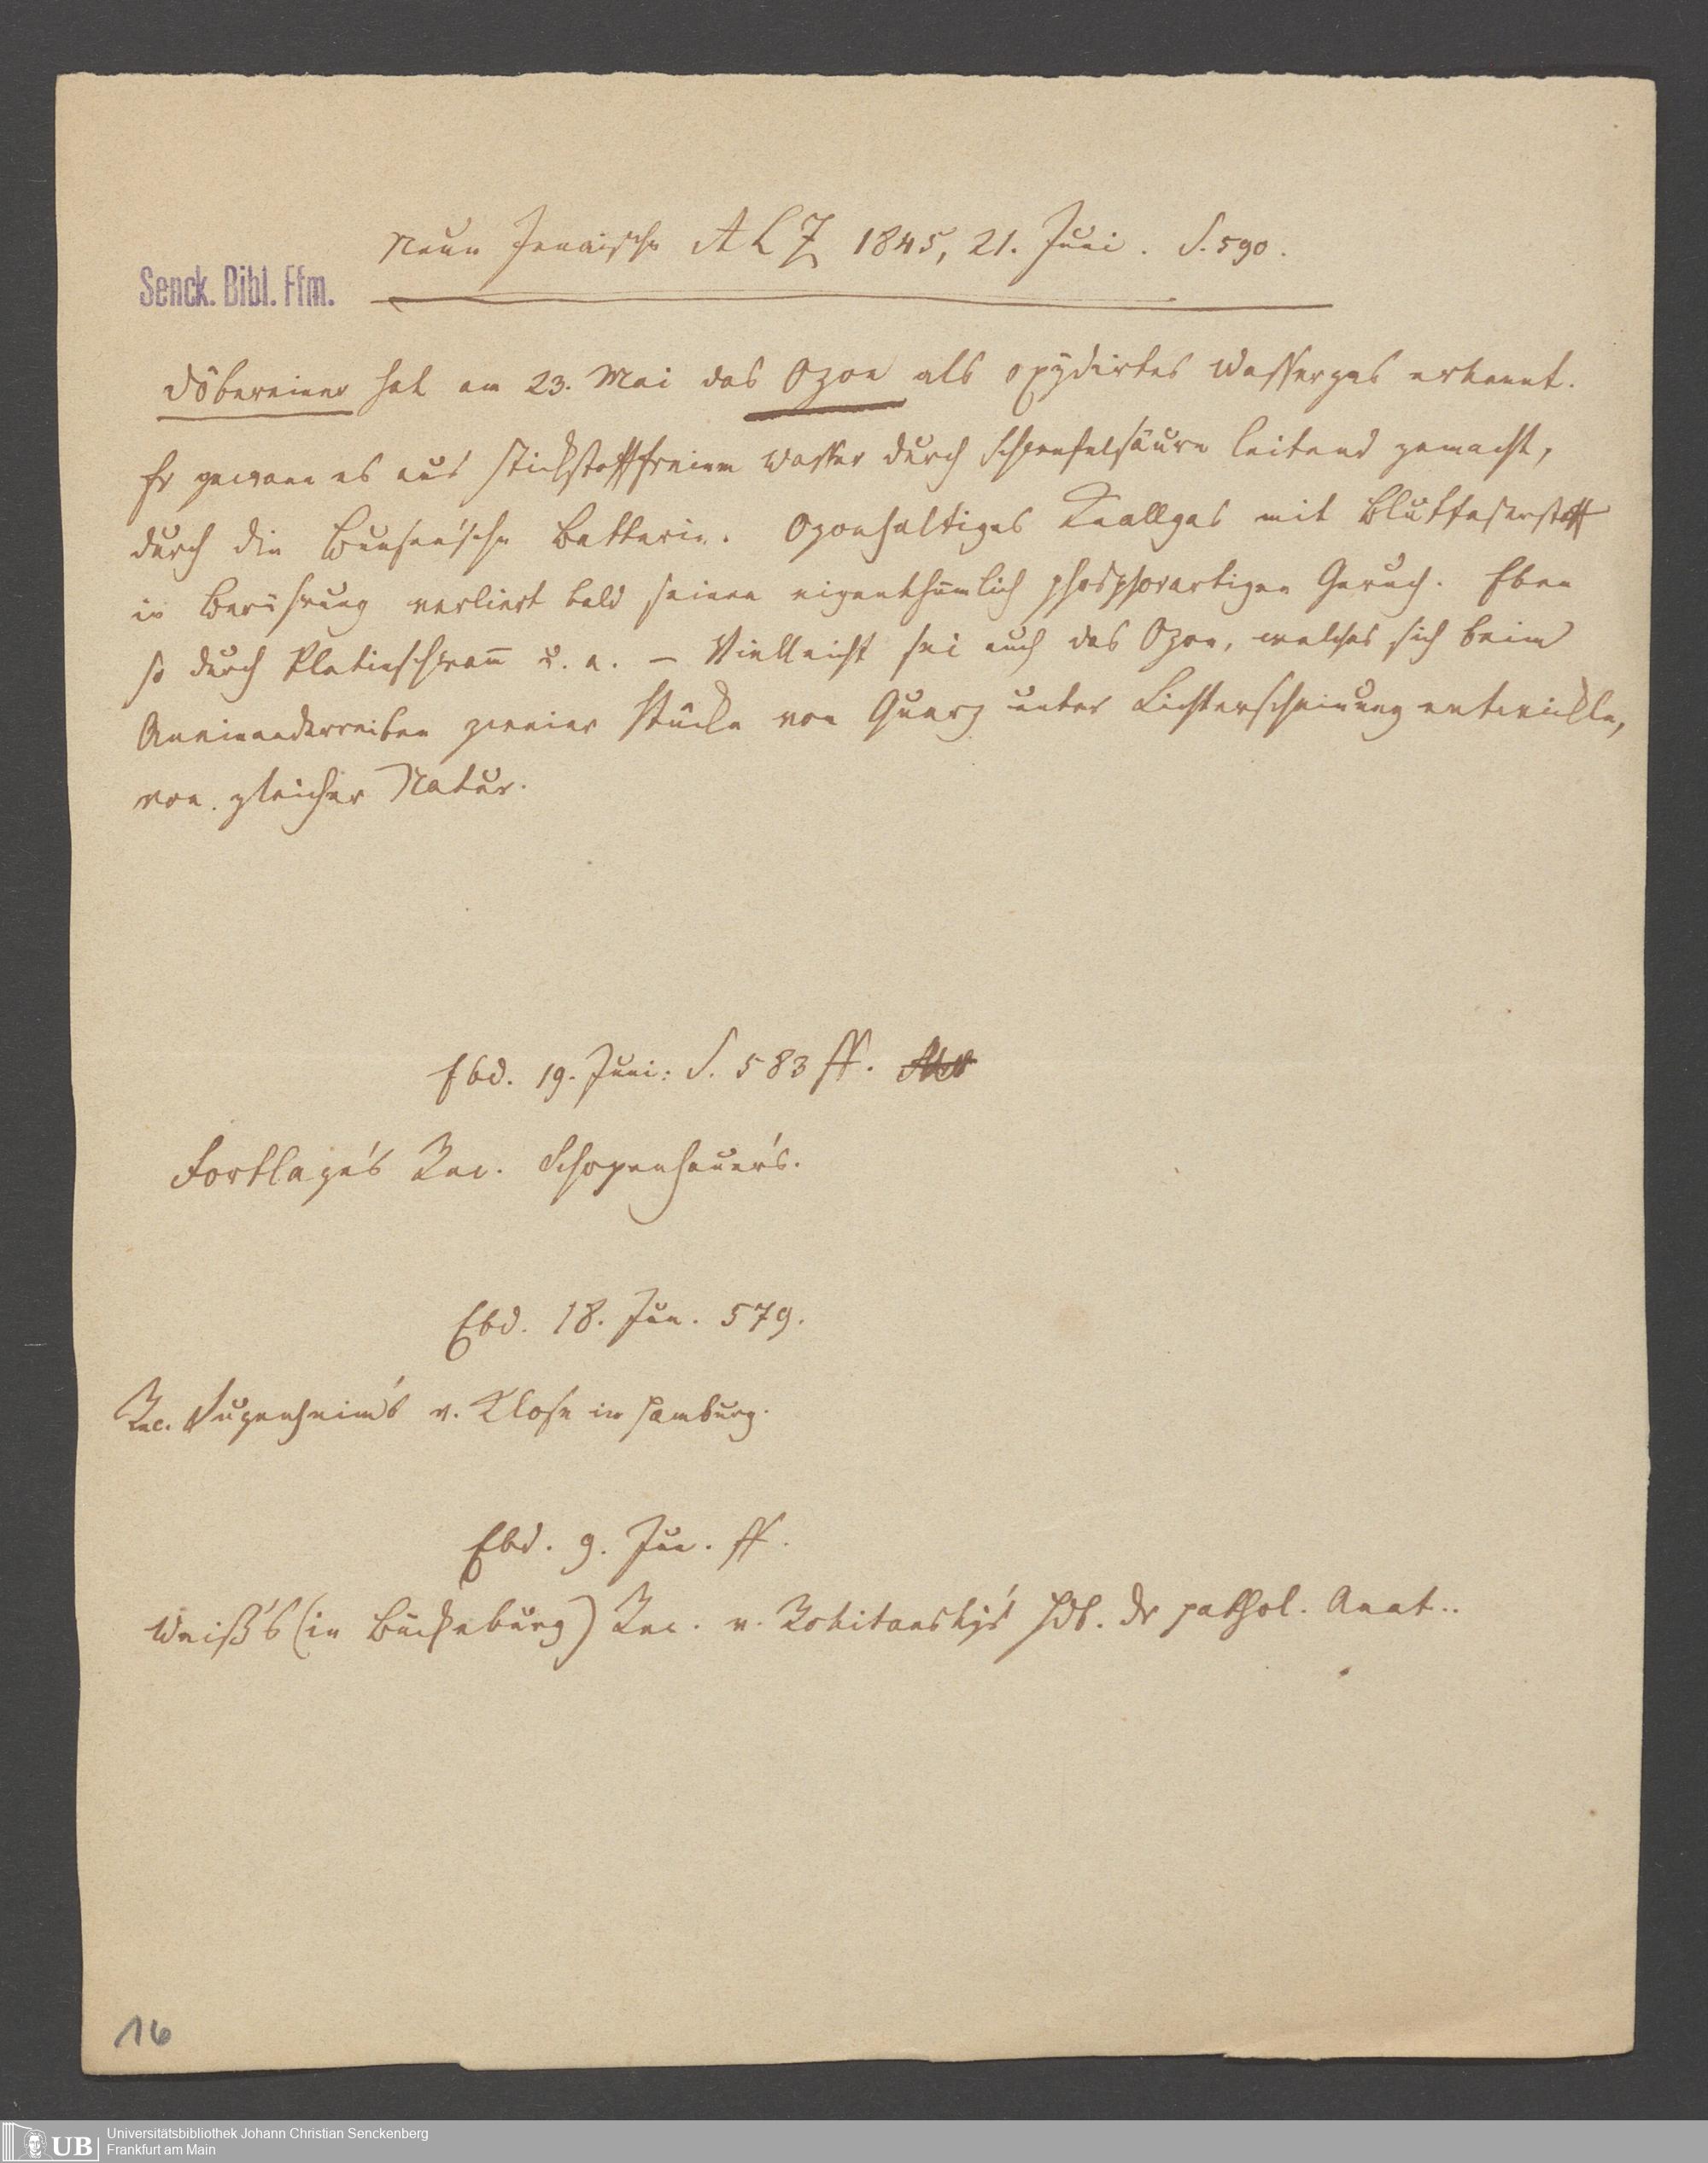 Neue Jenaische ALZ 1845, 21. Juni. S. 590.
Senck. Bibl. Ffm.
Döbereiner hat am 23. Mai das Ozon als oxydirtes Wassergas erkannt.
Er gewann es aus stickstofffreiem Wasser durch Schwefelsäure leitend gemacht,
durch die Bunsen'sche Batterie. Ozonhaltiges Knallgas mit Blutfaserstoff
in Berührung verliert bald seinen eigenthümlich phosphorartigen Geruch. Eben
so durch Platinschwam̅ u. a. – Vielleicht sei auch das Ozon, welches sich beim
Aneinanderreiben zweier Stücke von Quarz unter Lichterscheinung entwickle,
von gleicher Natur.
Ebd. 19. Juni: S. 583 ff.
Fortlage's Rec. Schopenhauer's.
Ebd. 18. Jun. 579.
Rec. Sugenheim's v. Klose in Hamburg.
Ebd. 9. Jun. ff.
Weiß's (in Bückeburg) Rec. v. Rokitansky's Hdb. der pathol. Anat..
16
UB
Universitätsbibliothek Johann Christian Senckenberg
Frankfurt am Main